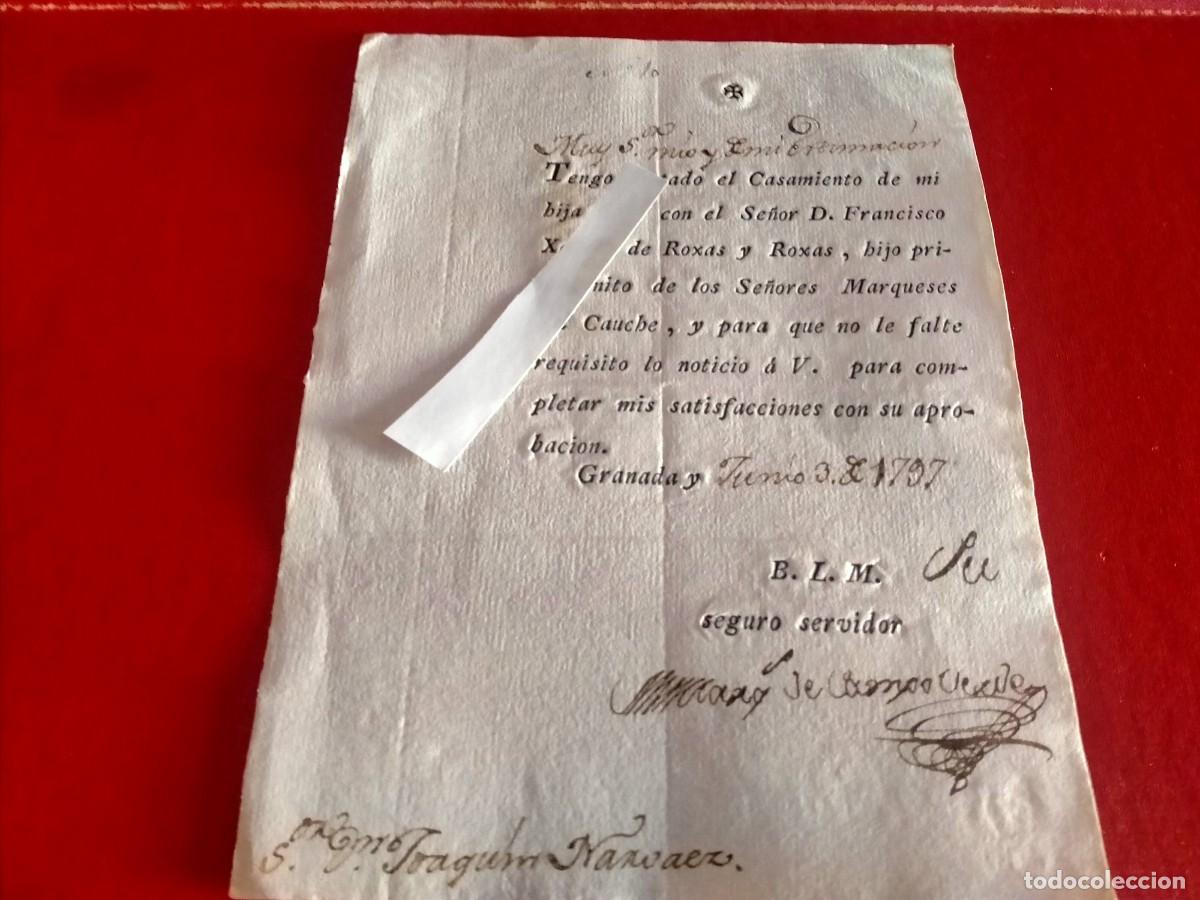 ✠
Muy S.or mio y de mi estimación
Tengo tado el Casamiento de mi
hija con el Señor D. Francisco
de Roxas y Roxas, hijo pri-
nito de los Señores Marqueses
Cauche, y para que no le falte
requisito lo noticio á V. para com-
pletar mis satisfacciones con su apro-
bacion.
Granada y Junio 3. de 1797
B. L. M. Su
seguro servidor
de Campo Verde
S.or D.n Joaquím Narvaez.
todocoleccion